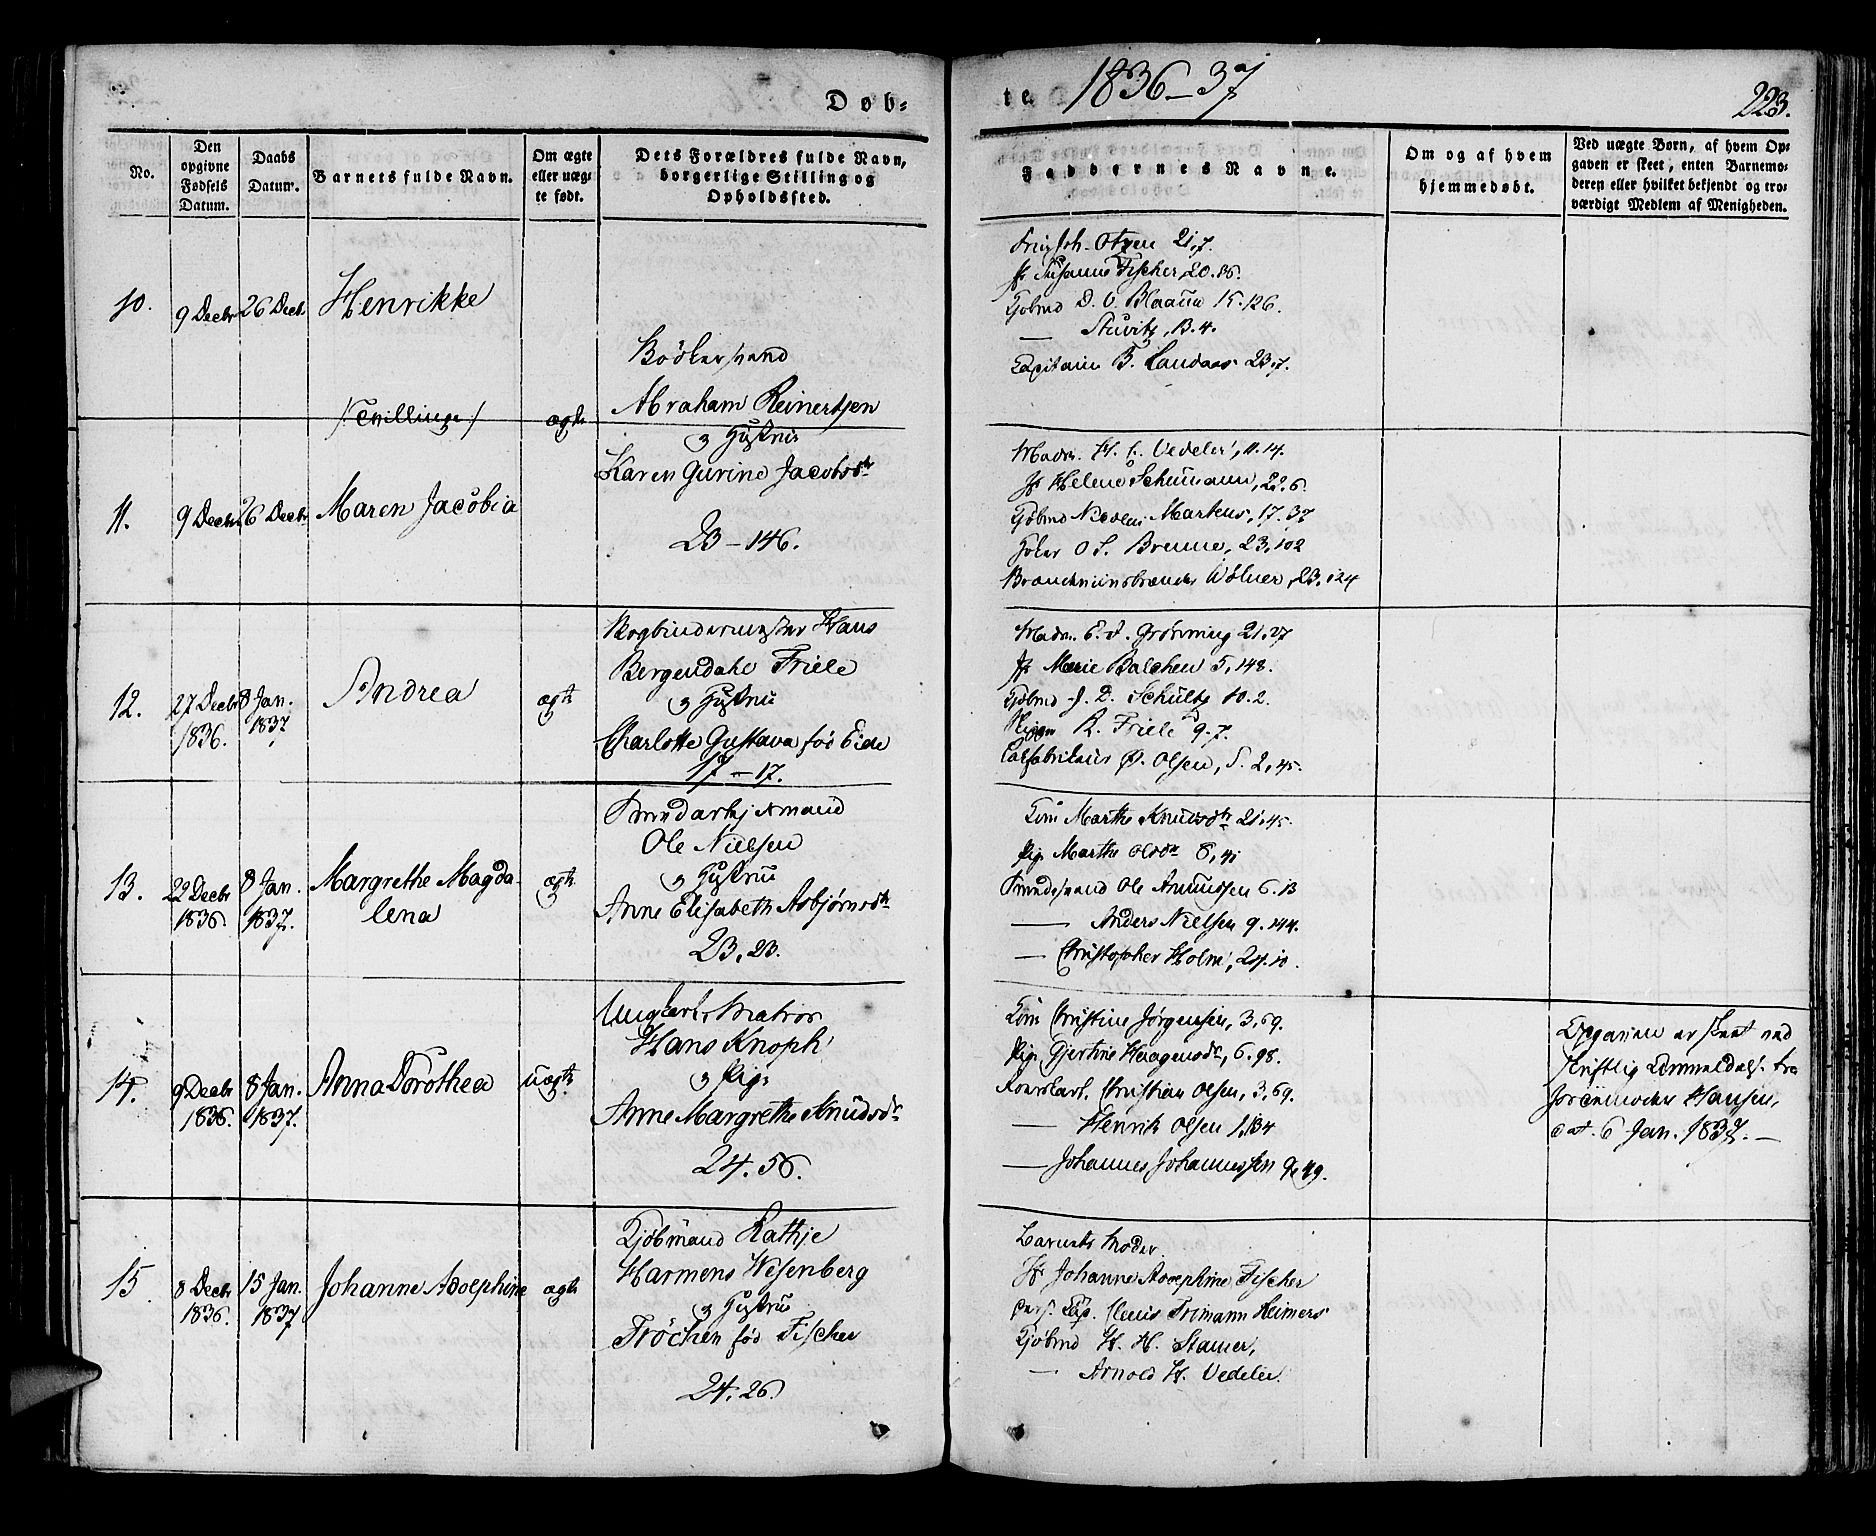 Døb-
te
1836-37
223.
No.
Den opgivne Fødsels Datum.
Daabs Datum.
Barnets fulde Navn.
Om ægte eller uæg-te født.
Dets Forældres fulde Navn, borgerlige Stilling og Opholdssted.
Faddernes Navne.
Om og af hvem hjemmedøbt.
Ved uægte Børn, af hvem Op-
gaven er skeet, enten Barnemo-
deren eller hvilket bekjendt og tro-
værdigt Medlem af Menigheden.
10.
9 Decbr
26 Decb.
Henrikke
/:Tvillinge:/
ægte
Bödkersvend
Abraham Reinertsen
& Hustrue
Karen Gurine Jacobsd
23-146.
Joh. Otzen 21,7.
Jf Susanne Fischer, 20.86.
Kjøbmd D. V. Blaauw 15.126.
— Stuvitz, B.4.
Capitain B. Landaas 23.7.
11.
9 Decbr
26 Decbr
Maren Jacobia
Madm. H. C. Vedeler, 11.14.
Jf Helene Schumann, 22.6.
Kjøbmd Nicolai Martens, 17.37
Høker O S. Brenne, 23,102
Wölner, 23.124
12.
27 Decbr
1836.
8 Jan.
1837
Andrea
ægte
Bogbindermester Hans
Bergendahl Friele
& Hustrue
Charlotte Gustava fød Eide
17-17.
Madm. E. J. Grönning 21.27
Jf Marie Balchen 5,148.
Kjøbmd J. D. Schultz 10.2.
R. Friele 9.7.
Olsen, S. 2,45.
13.
22 Decbr
1836.
8 Jan.
1837.
Margrethe Magda-
lena
ægte
Ole Nielsen
& Hustrue
Anne Elisabeth Asbjørnsd
23,23.
Kone Marthe Knudsd 21.45.
Pige Marthe Olsd 8,41
Ole Amundsen 6.13
— Anders Nielsen 9.144.
— Christopher Holm, 24.10.
14.
9 Decbr
1836.
8 Jan.
1837.
Anna Dorothea
uægte
Ungkarl, Matros
Hans Knoph
& Pige
Anne Margrethe Knudsd
24.56.
Kone Christine Jørgensen, 3,69.
Pige Gjertine Haagensd, 6.98.
Christian Olsen, 3,69.
— Henrik Olsen 1,134
— Johannes Johannessen 9,49.
Opgaven er skeet ved
skriftlig Anmeldelse fra
Jordemoder Hansen,
dat. 6 Jan. 1837.—
15.
8 Decbr
1836.
15 Jan.
1837
Johanne Adolphine
ægte
Kjöbmand Rathje
Harmens Wesenberg
& Hustrue
Tröchen fød Fischer
24.26.
Barnets Moder.
Jf Johanne Adolphine Fischer
Claus Trimann Reimers
Kjöbmd H. H. Stamer,
— Arnold H. Vedeler.